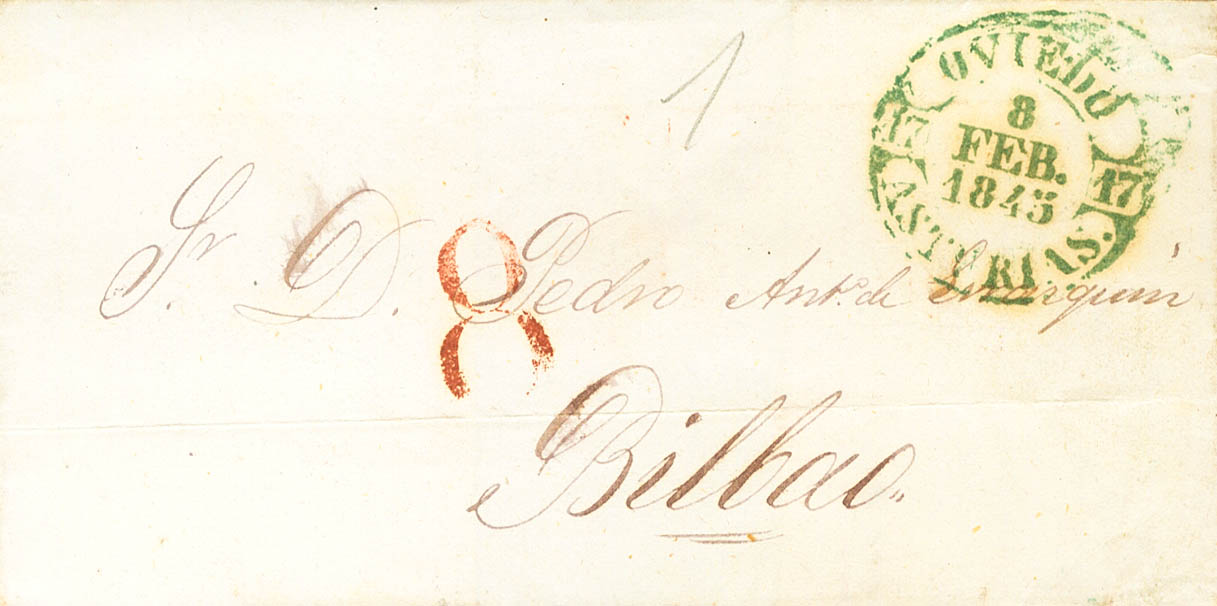 1
OVIEDO
17 17
8
FEB.
1845
ASTURIAS.
Sr. D. Pedro Anto. de
8
Bilbao